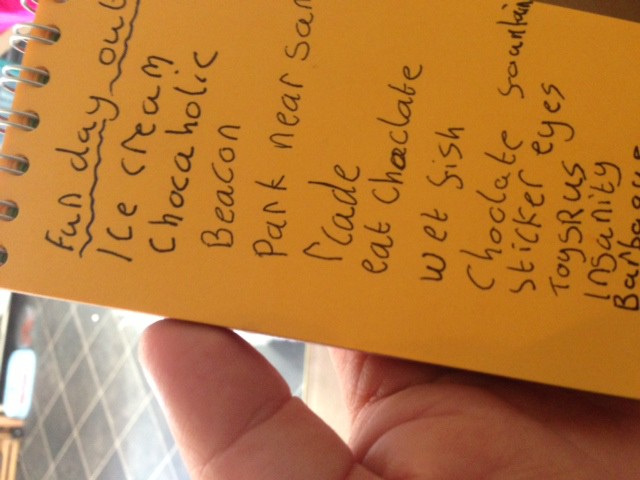 Fun day out
Ice cream
Chocaholic
Beacon
Park near san
rcade
eat Choclate
wet fish
Choclate fountain
Sticker eyes
ToysRus
Insanity